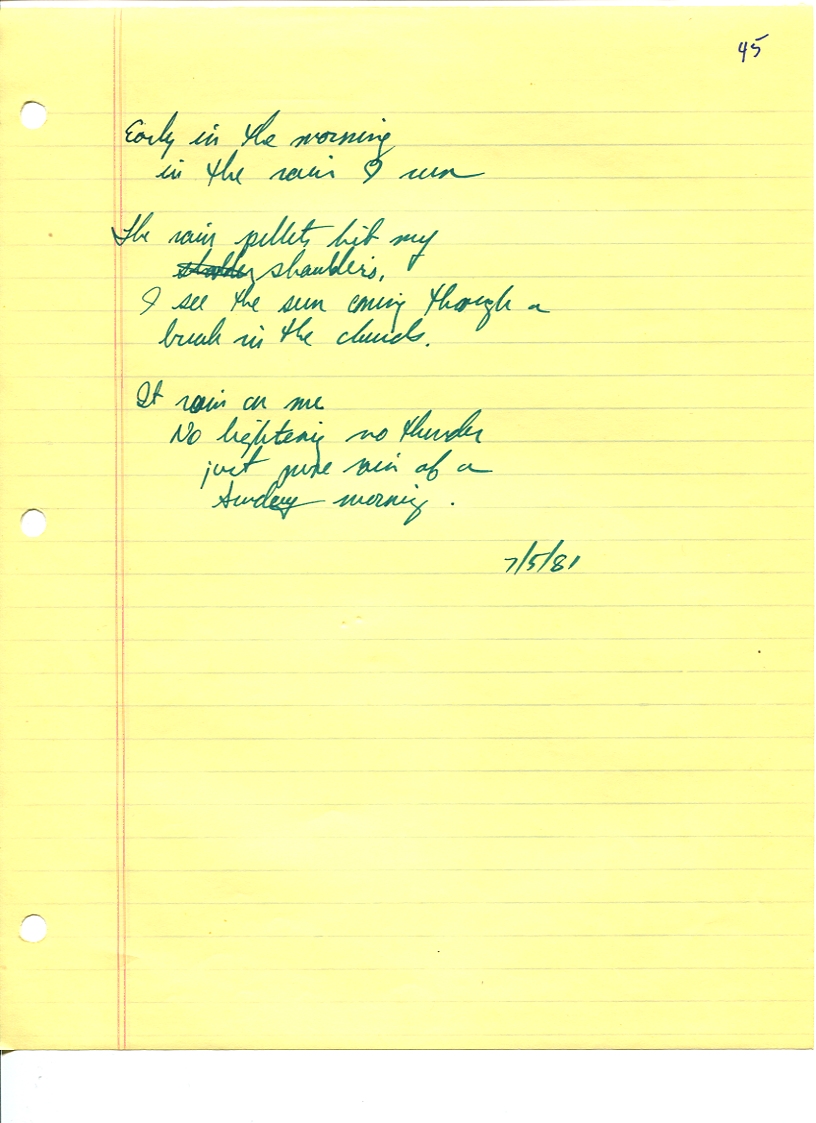 45
Early in the morning
in the rain I run
The rain pellets hit my
shoulders,
I see the sun coming though a
break in the clouds.
It rain on me
No lightening no thunder
just pure rain of a
Sunday morning.
7/5/81